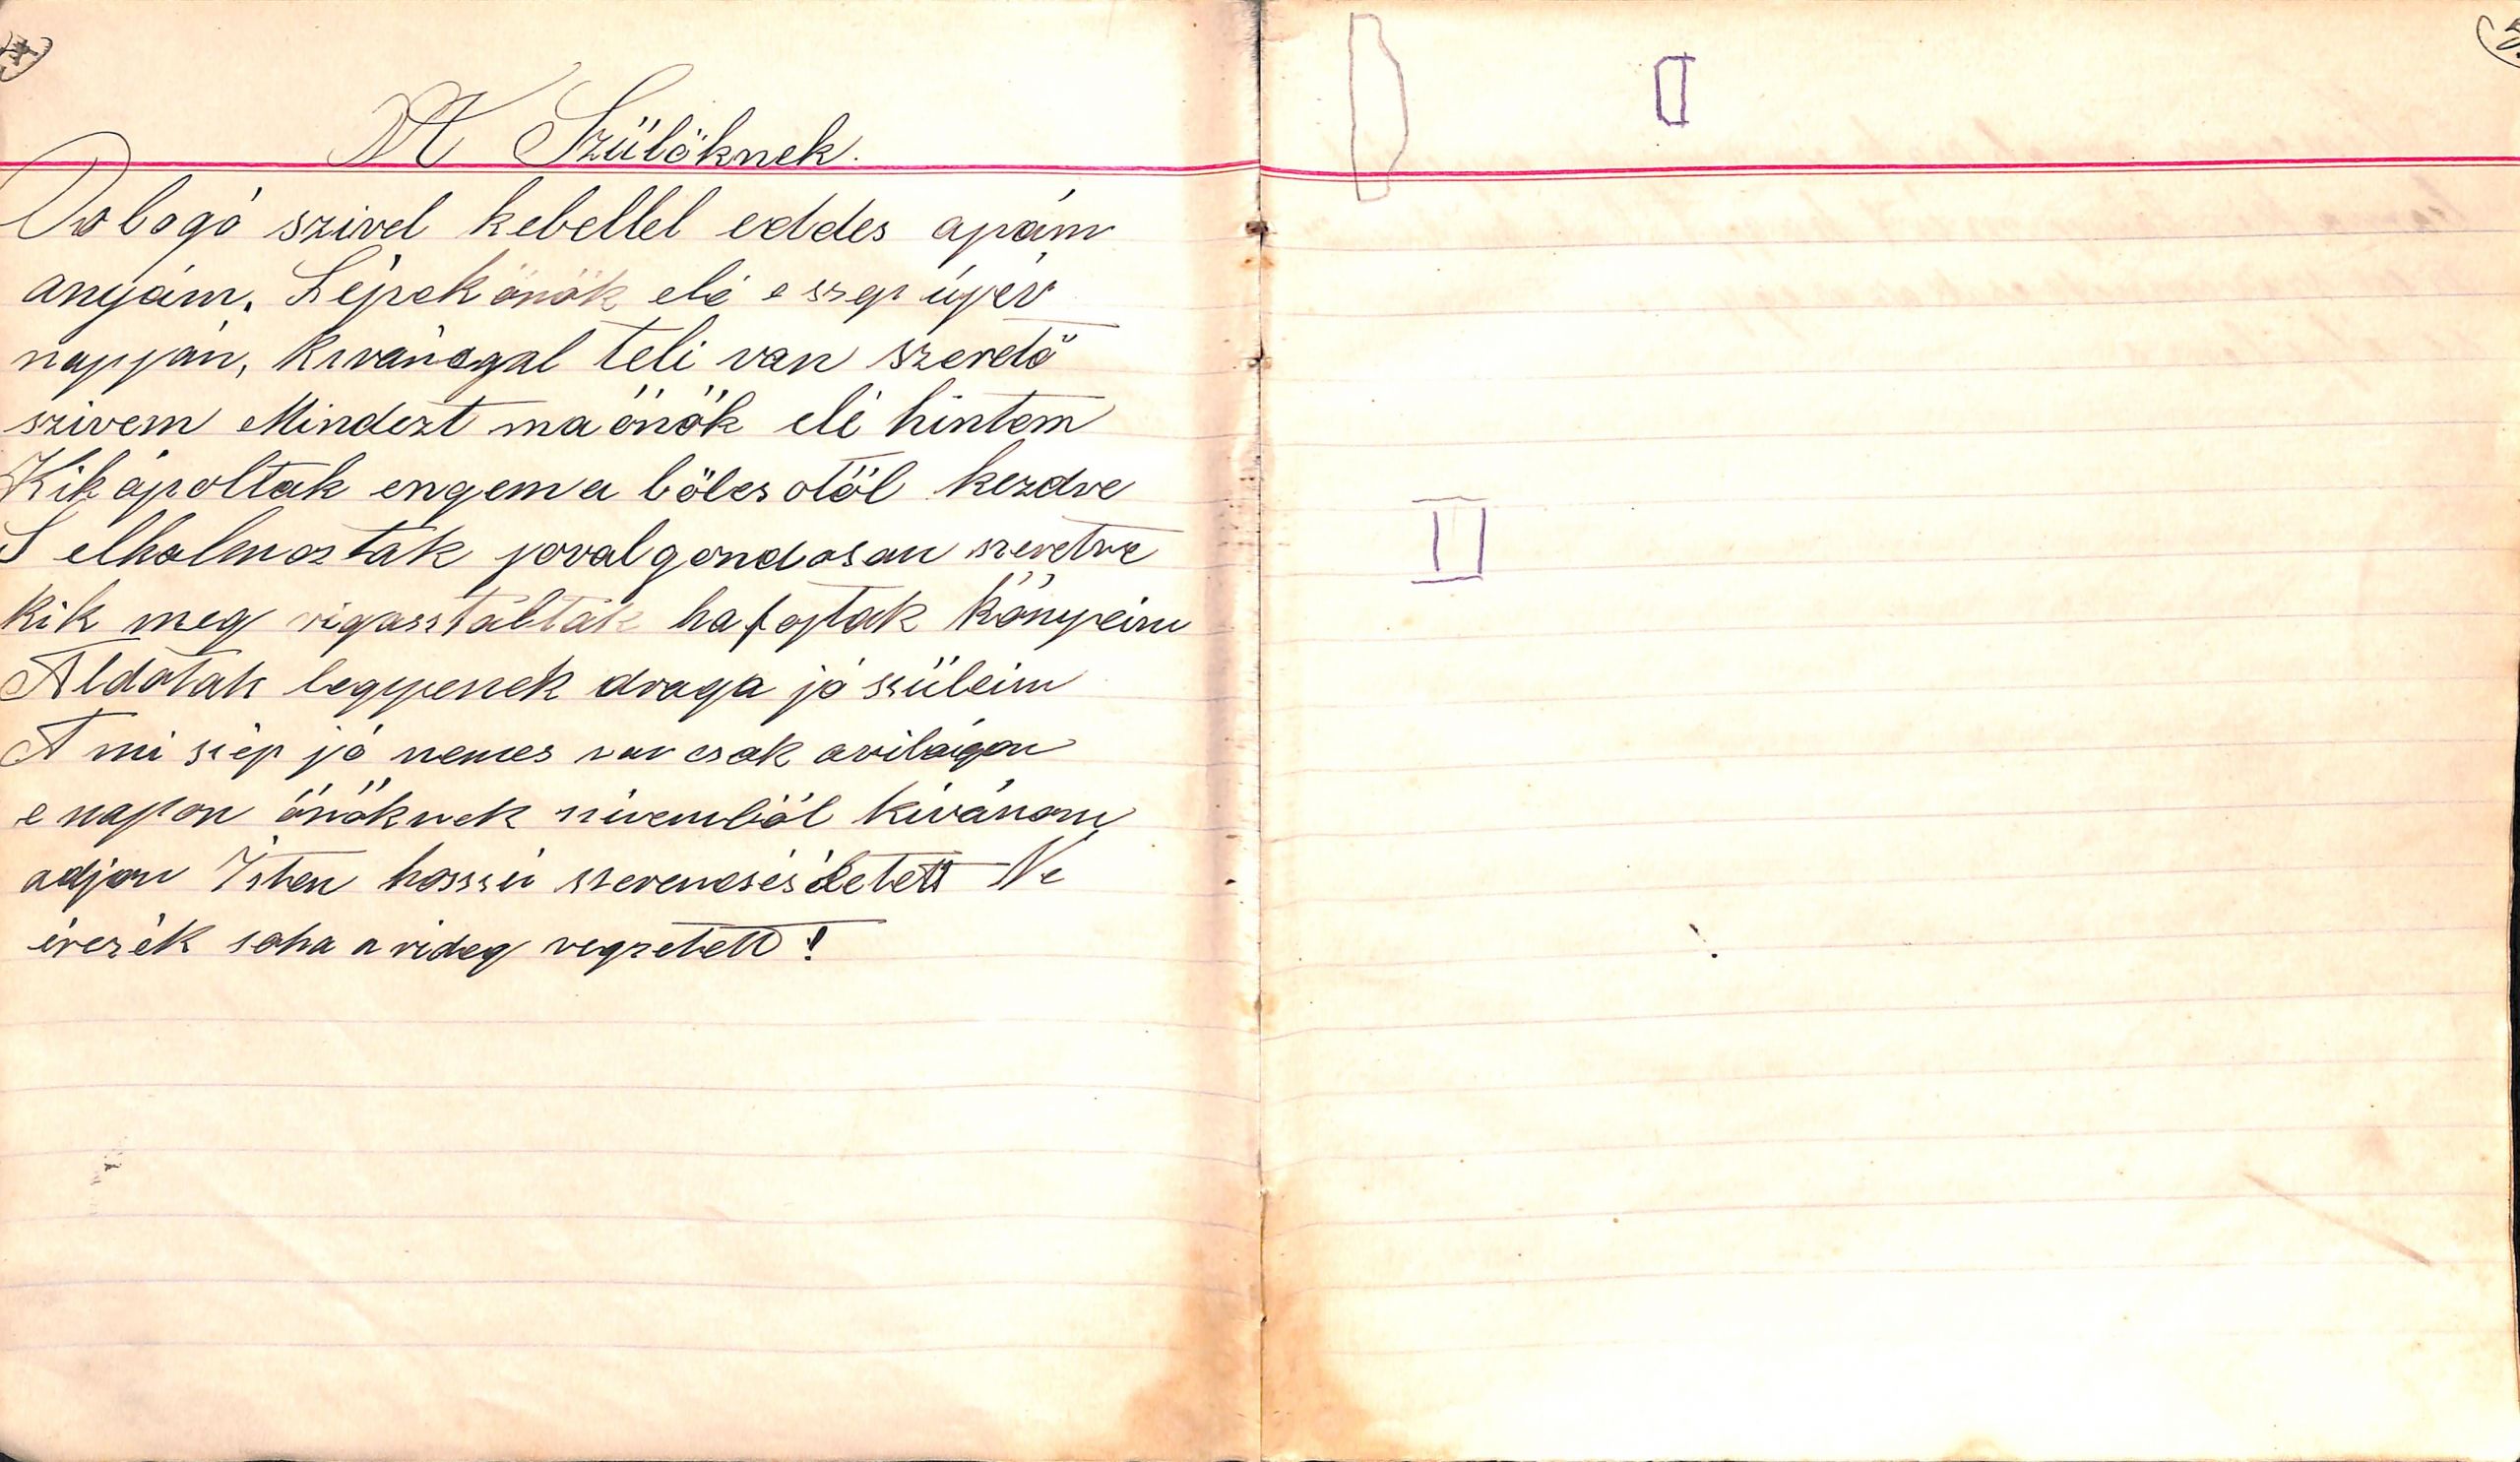 A Szülöknek.
Dobogó szivel kebellel eddes apám
anyám. Lépek önök elé e szep újév
napján, kivánsgal teli van szeretö
szivem Mindezt ma önök elé hintem
Kik ápoltak engem a bölcsötöl kezdve
S elhalmoztak joval gondosan szeretve
kik meg vigasstáltak ha fojtak könyeim
Áldotak legyenek draga jó szüleim
A mi szép jó nemes van csak a világon
e napon önöknek szivemböl kivánom
adjon Isten hosszú szerencsés életett Ne
érezék soha a rideg vegzetett!
II